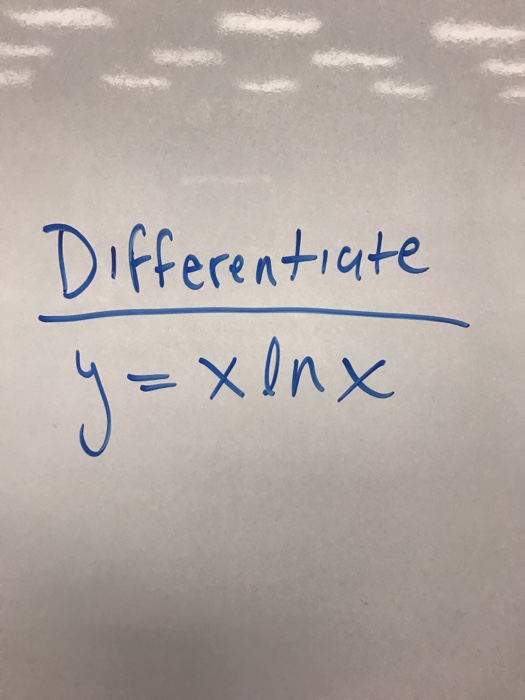 Differentiate
y = x ln x